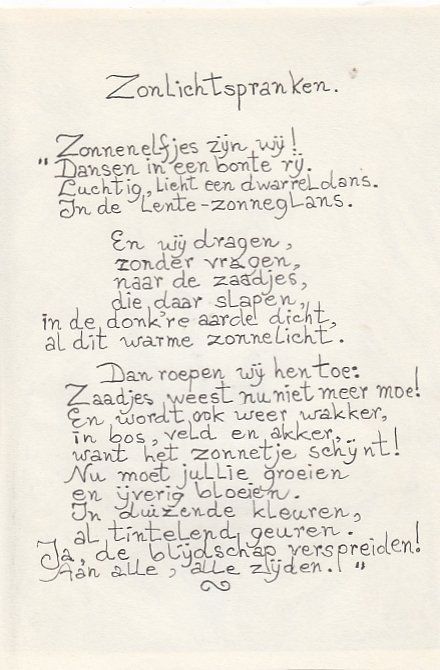 Zonlichtspranken.
Zonnenelfjes zijn wij!
"Dansen in een bonte rij.
Luchtig, licht een dwarreldans.
In de Lente-zonneglans.
En wij dragen,
zonder vragen,
naar de zaadjes,
die daar slapen,
in de donk're aarde dicht,
al dit warme zonnelicht.
Dan roepen wij hen toe:
Zaadjes weest nu niet meer moe!
En wordt ook weer wakker,
in bos, veld en akker,
want het zonnetje schijnt!
Nu moet jullie groeien
en ijverig bloeien.
In duizende kleuren,
al tintelend geuren.
Ja, de blijdschap verspreiden!
Aan alle, alle zijden!"